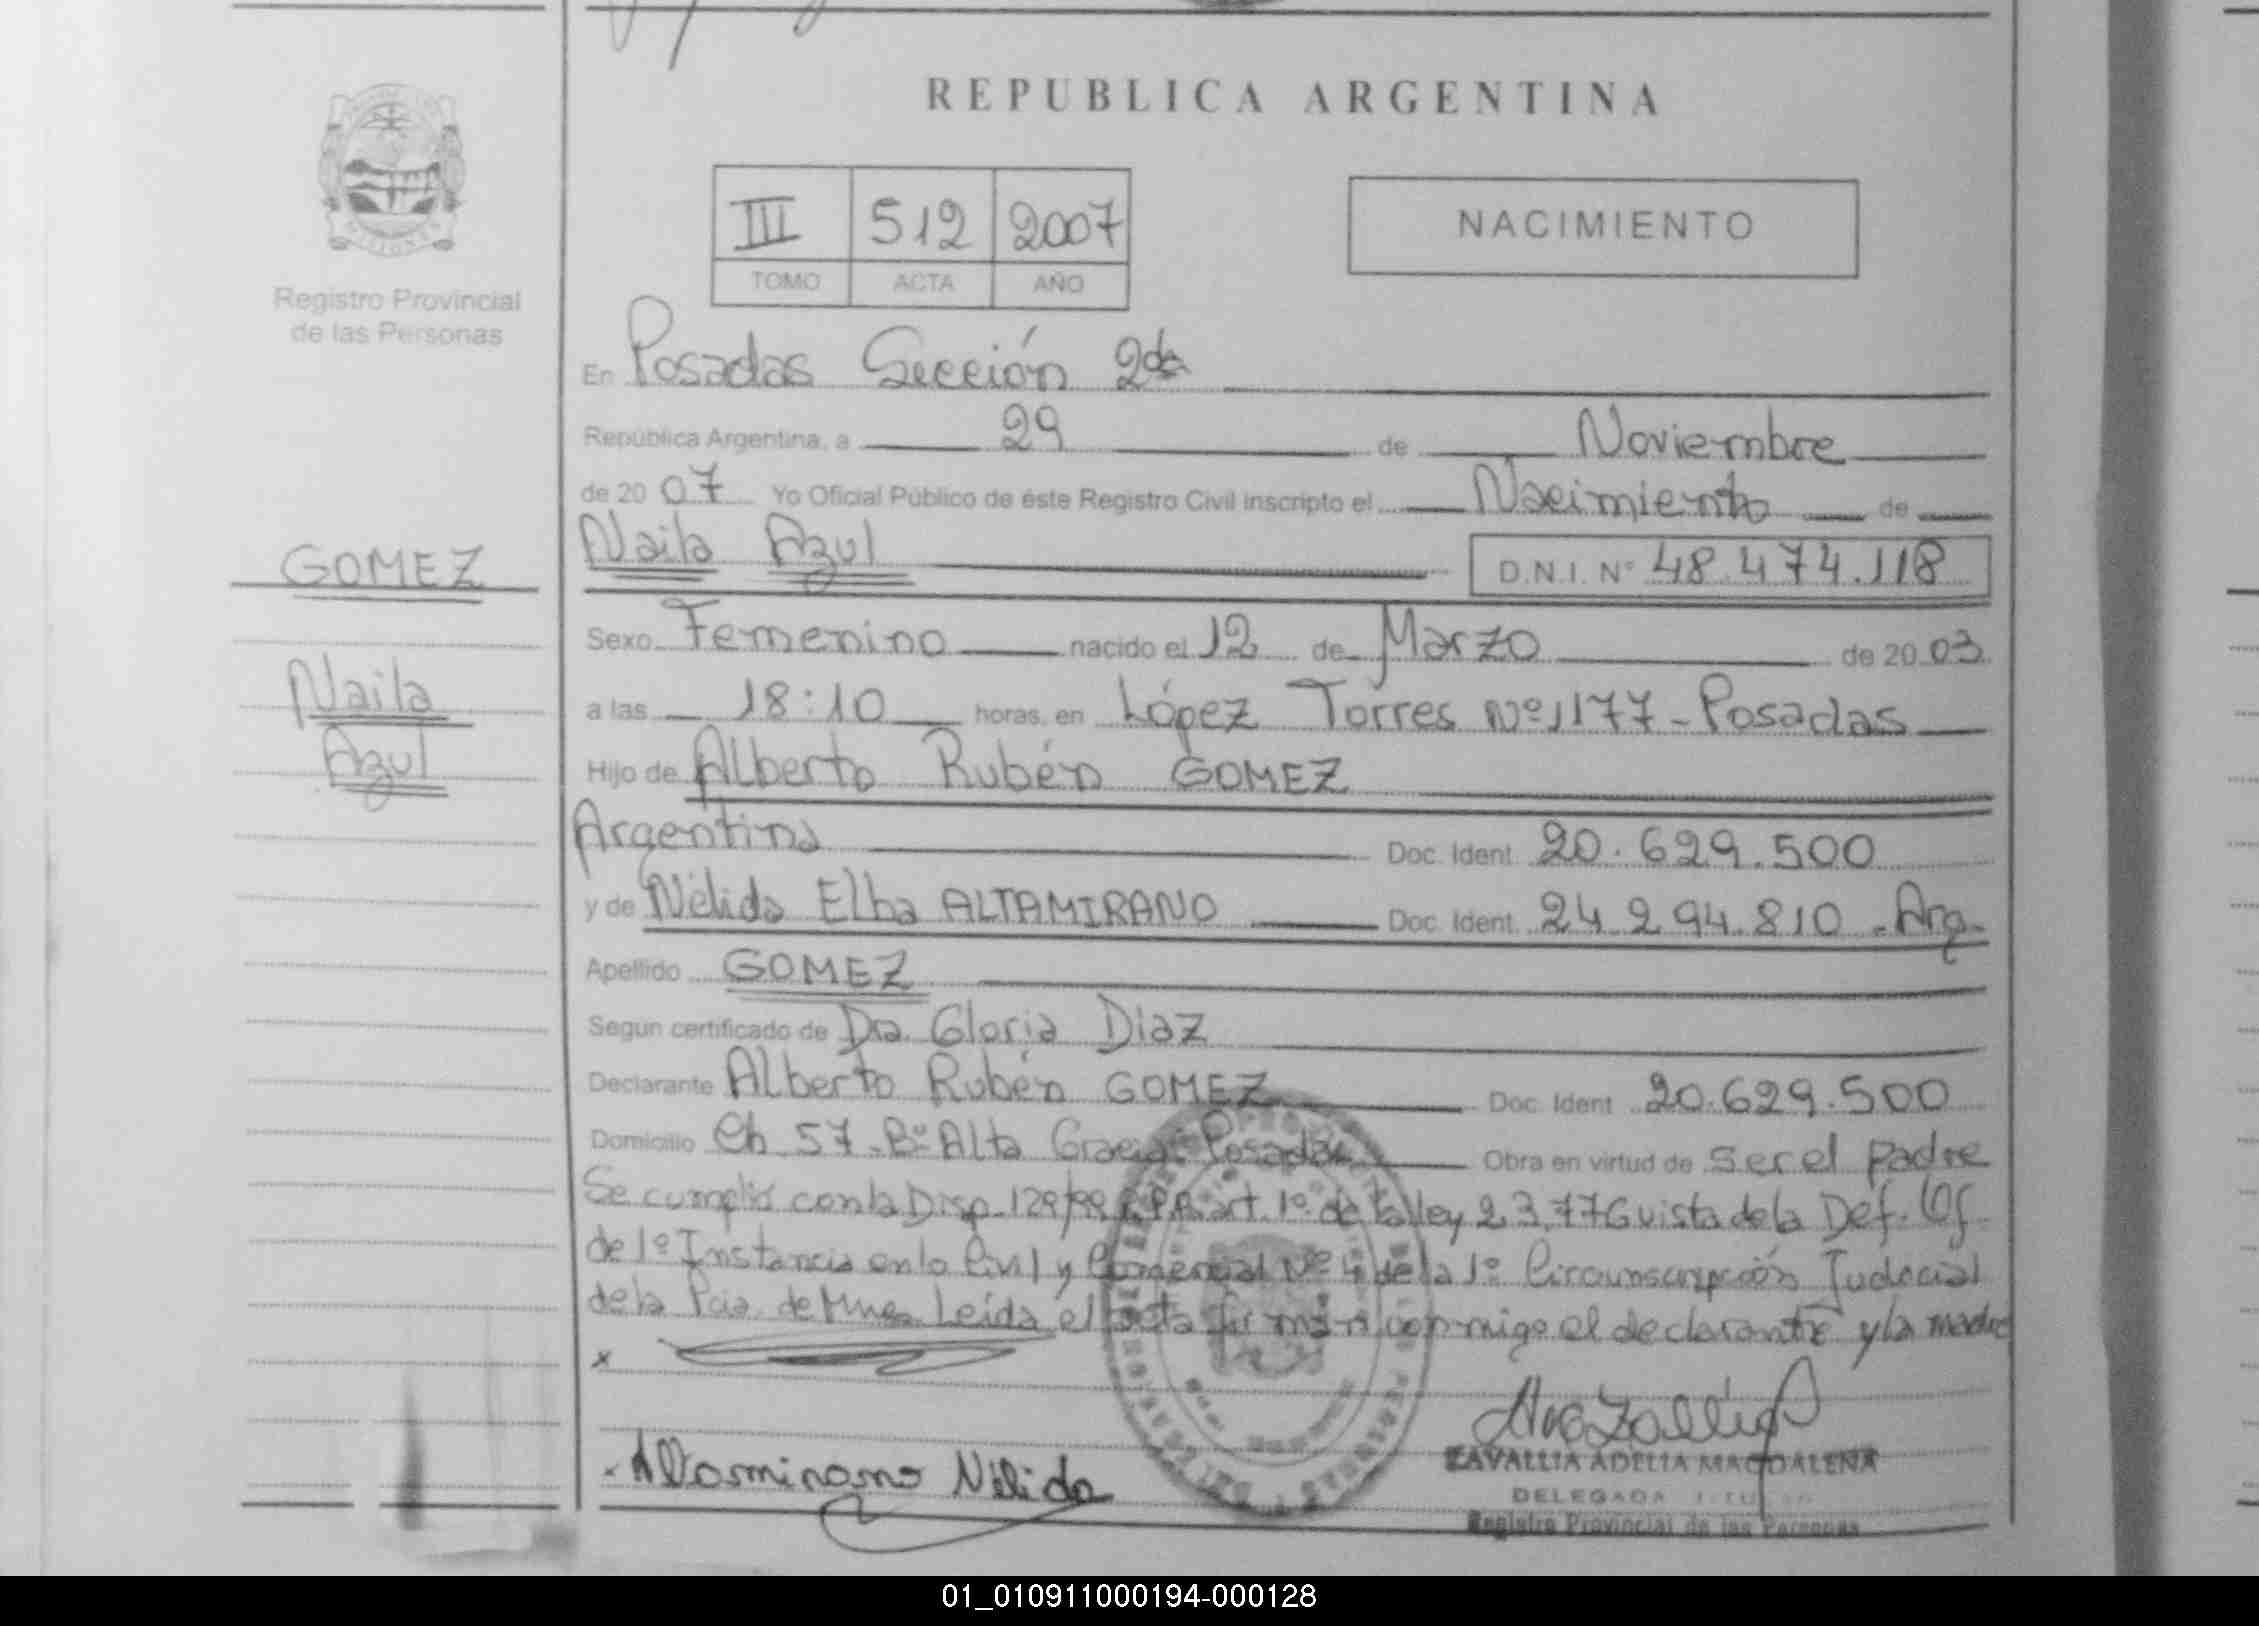 REPUBLICA ARGENTINA
III 512 2007
TOMO ACTA AÑO
NACIMIENTO
MISIONES
Registro Provincial
de las Personas
En Posadas Sección 2da
República Argentina, a 29 de Noviembre
de 2007 Yo Oficial Público de éste Registro Civil inscripto el Nacimiento de
GOMEZ
Naila Azul D.N.I. Nº 48.474.118
Sexo Femenino nacido el 12 de Marzo de 2003
Naila
a las 18:10 horas, en López Torres Nº 1177 - Posadas
Azul
Hijo de Alberto Rubén GOMEZ
Argentina Doc. Ident. 20.629.500
y de Nélida Elba ALTAMIRANO Doc. Ident. 24.294.810 - Arg.
Apellido GOMEZ
Según certificado de Dra. Gloria Diaz
Declarante Alberto Rubén GOMEZ Doc. Ident. 20.629.500
Domicilio Ch. 57 - Bº Alta Gracia Posadas Obra en virtud de ser el padre
Se cumplió con la Disp. 129/99 art. 1º de la ley 23.776 vista de la Def. Of.
de 1º Instancia en lo Civil y Comercial Nº 4 de la 1º Circunscripción Judicial
de la Pcia. de Mnes. Leída el acta firman conmigo el declarante y la madre
x
x Altamirano Nélida
ZAVALLIA ADELIA MAGDALENA
DELEGADA
Registro Provincial de las Personas
01_010911000194-000128